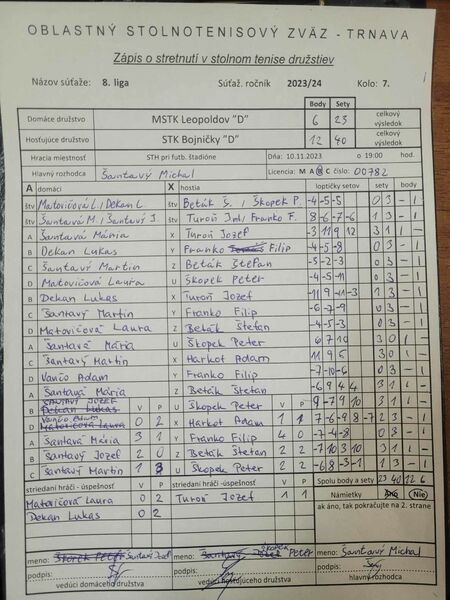 OBLASTNÝ STOLNOTENISOVÝ ZVÄZ - TRNAVA
Zápis o stretnutí v stolnom tenise družstiev
Názov súťaže: 8. liga Súťaž. ročník 2023/24 Kolo: 7.
Body Sety
Domáce družstvo MSTK Leopoldov "D" 6 23 celkový výsledok
Hosťujúce družstvo STK Bojničky "D" 12 40 celkový výsledok
Hracia miestnosť STH pri futb. štadióne Dňa: 10.11.2023 o 19:00 hod.
Hlavný rozhodca Šantavý Michal Licencia: M A B C číslo: 00782
A domáci X hostia loptičky setov sety body
štv Matovičová L., Dekan L. štv Beták Š., Škopek P. -4 -5 -5 0 3 - 1
štv Šantavá M., Šantavý J. štv Turoň Jozef, Franko F. 8 -6 -7 -6 1 3 - 1
A Šantavá Mária X Turoň Jozef -3 11 9 12 3 1 1 -
B Dekan Lukas Y Franko Filip -4 -5 -8 0 3 - 1
C Šantavý Martin Z Beták Štefan -3 -2 -3 0 3 - 1
D Matovičová Laura U Škopek Peter -4 -5 -11 0 3 - 1
B Dekan Lukas X Turoň Jozef -11 9 -11 -3 1 3 - 1
C Šantavý Martin Y Franko Filip -6 -7 -9 0 3 - 1
D Matovičová Laura Z Beták Štefan -4 -5 -3 0 3 - 1
A Šantavá Mária U Škopek Peter 6 7 10 3 0 1 -
C Šantavý Martin X Harkot Adam 11 9 5 3 0 1 -
D Vančo Adam Y Franko Filip -7 -10 -6 0 3 - 1
A Šantavá Mária Z Beták Štefan -6 9 4 4 3 1 1 -
B Šantavý Jozef V P U Škopek Peter V P 9 -7 9 10 3 1 1 -
D Vančo Adam 0 2 X Harkot Adam 1 1 7 -6 9 -8 -7 2 3 - 1
A Šantavá Mária 3 1 Y Franko Filip 4 0 -7 -4 -8 0 3 - 1
B Šantavý Jozef 2 0 Z Beták Štefan 2 2 -7 10 3 10 3 1 1 -
C Šantavý Martin 1 3 U Škopek Peter 2 2 -6 8 -3 -1 1 3 - 1
striedaní hráči - úspešnosť V P striedaní hráči -úspešnosť V P Spolu body a sety 23 40 12 6
Matovičová Laura 0 2 Turoň Jozef 1 1 Námietky Áno Nie
Dekan Lukas 0 2 ak áno, tak pokračujte na 2. strane
meno: Šantavý Jozef meno: Škopek Peter meno: Šantavý Michal
podpis: podpis: podpis:
vedúci domáceho družstva vedúci hosťujúceho družstva hlavný rozhodca